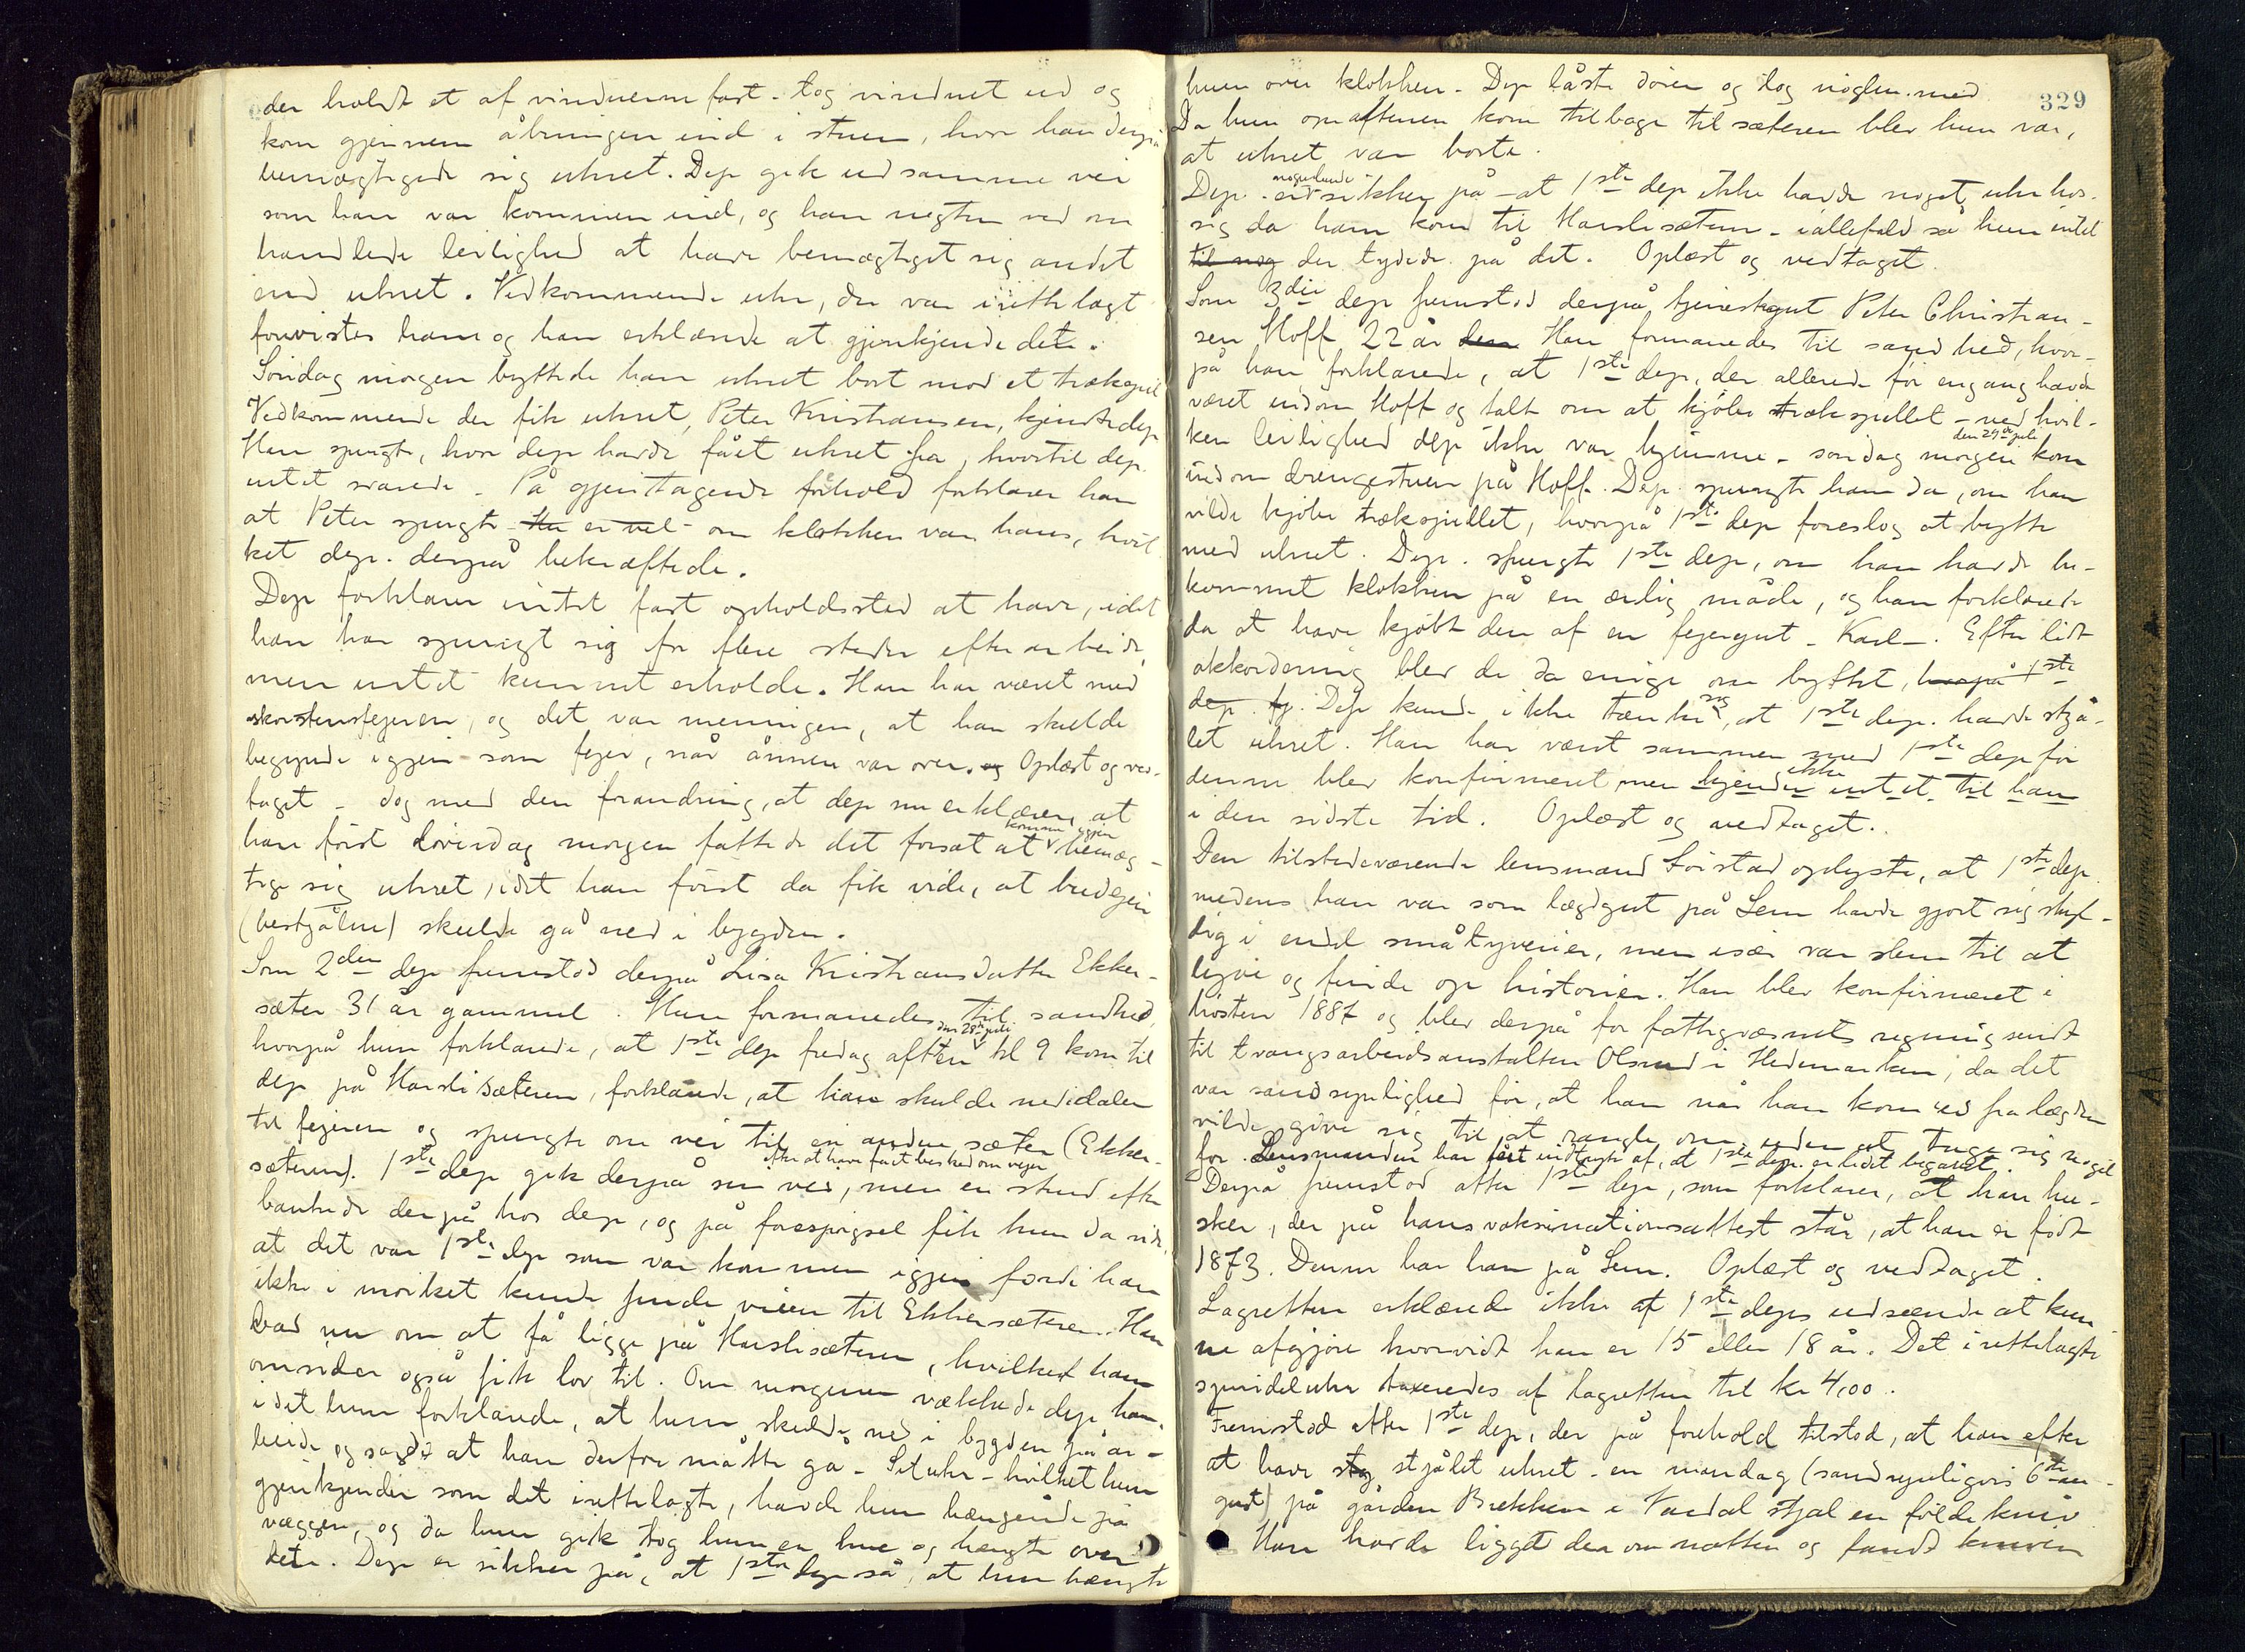 der holdt et af vinduerne fast - tog vinduet ud og
kom gjennem åbningen ind i stuen, hvor han derpå
bemægtigede sig uhret. Dep gik ud samme vei
som han var kommen ind, og han negter ved om
handlede leilighed at have bemægtiget sig andet
end uhret. Vedkommende uhr, der var irettelagt
forevistes ham og han erklærede at gjenkjende det.
Søndag morgen byttede han uhret bort mod et trækspil
Vedkommende der fik uhret, Peter Kristiansen, kjendte dep
Han spurgte, hvor dep havde fået uhret fra, hvortil dep.
intet svarede. På gjentagende forhold forklarer han
at Peter spurgte - om klokken var hans, hvil
ket dep. derpå bekræftede.
Dep forklarer intet fast opholdssted at have, idet
han har spurgt sig for flere steder efter arbeide,
men intet kunnet erholde. Han har været med
skorstensfejeren, og det var meningen, at han skulde
begynde igjen som fejer, når ånnen var over. Oplæst og ved-
taget - dog med den forandring, at dep nu erklærer, at
han først lørdag morgen fattede det forsæt at komme igjen bemæg-
tige sig uhret, idet han først da fik vide, at budeijen
(bestjålne) skulde gå ned i bygden.
Som 2den dep fremstod derpå Lisa Kristiansdatter Ekker-
sæter 31 år gammel. Hun formanedes til sandhed,
hvorpå hun forklarede, at 1ste dep fredag aften den 28de juli kl 9 kom til
dep på Harslisæteren, forklarede, at han skulde ned i dalen
til fejeren og spurgte om vei til en anden sæter (Ekker-
sæteren). 1ste dep gik derpå efter at have fået besked om vejen sin vei, men en stund efter
bankede der på hos dep, og på forespørgsel fik hun da vide,
at det var 1ste dep som var kommen igjen fordi han
ikke i mørket kunde finde veien til Ekkersæteren. Han
bad nu om at få ligge på Harslisæteren, hvilket han
omsider også fik lov til. Om morgenen vækkede dep ham,
idet hun forklarede, at hun skulde ned i bygden på ar-
beide og sagde at han derfor måtte gå. Sit uhr - hvilket hun
gjenkjender som det irettelagte, havde hun hængende på
væggen, og da hun gik tog hun en hue og hængte over
dette. Dep er sikker på, at 1ste dep så, at hun hængte
329
huen over klokken. Dep låste døren og tog nøglen med.
Da hun om aftenen kom tilbage til sæteren blev hun var,
at uhret var borte.
Dep. er nogenlunde sikker på - at 1ste dep ikke havde noget uhr hos
sig da han kom til Harslisæteren - iallefald så hun intet
til nog der tydede på det. Oplæst og vedtaget.
Som 3die dep fremstod derpå tjenestegut Peter Christian-
sen Hoff 22 år den Han formanedes til sandhed, hvor-
på han forklarede, at 1ste dep, der allerede før engang havde
været indom Hoff og talt om at kjøbe trækspillet - ved hvil-
ken leilighed dep ikke var hjemme - søndag morgen den 29de juli kom
indom drengestuen på Hoff. Dep spurgte ham da, om han
vilde kjøbe trækspillet, hvorpå 1ste dep foreslog at bytte
med uhret. Dep. spurgte 1ste dep, om han havde be-
kommet klokken på en ærlig måde, og han forklarede
da at have kjøbt den af en fejergut - Karl -. Efter lidt
akkordering blev de da enige om byttet, hvorpå 1ste
dep. Dep kunde ikke tænke sig, at 1ste dep. havde stjå-
let uhret. Han har været sammen med 1ste dep før
denne blev konfirmeret men kjender ikke intet til ham
i den sidste tid. Oplæst og vedtaget.
Den tilstedeværende lensmand Løistad oplyste, at 1ste dep.
medens han var som lægdgut på Sem havde gjort sig skyl-
dig i endel småtyverier, men især var slem til at
lyve og finde op historier. Han blev konfirmeret i
høsten 1887 og blev derpå for fattigvæsnets regning sendt
til tvangsarbeidsanstalten Olsrud i Hedemarken, da det
var sandsynlighed for, at han når han kom ud fra lægden
vilde give sig til at rangle om uden at tage sig noget
for. Lensmanden har fåt indtryk af, at 1ste dep. er lidet begavet.
Derpå fremstod atter 1ste dep, som forklarer, at han hu-
sker, der på hans vaksinationsattest står, at han er født
1873. Denne har han på Sem. Oplæst og vedtaget.
Lagretten erklærede ikke af 1ste deps udseende at kun
ne afgjøre hvorvidt han er 15 eller 18 år. Det irettelagte
spindeluhr taxeredes af lagretten til kr 4,00.
Fremstod atter 1ste dep, der på forehold tilstod, at han efter
at have stj stjålet uhret - en mandag (sandsynligvis 6te au-
gust) på gården Brekken i Vardal stjal en foldekniv
Han havde ligget der om natten og fandt kniven